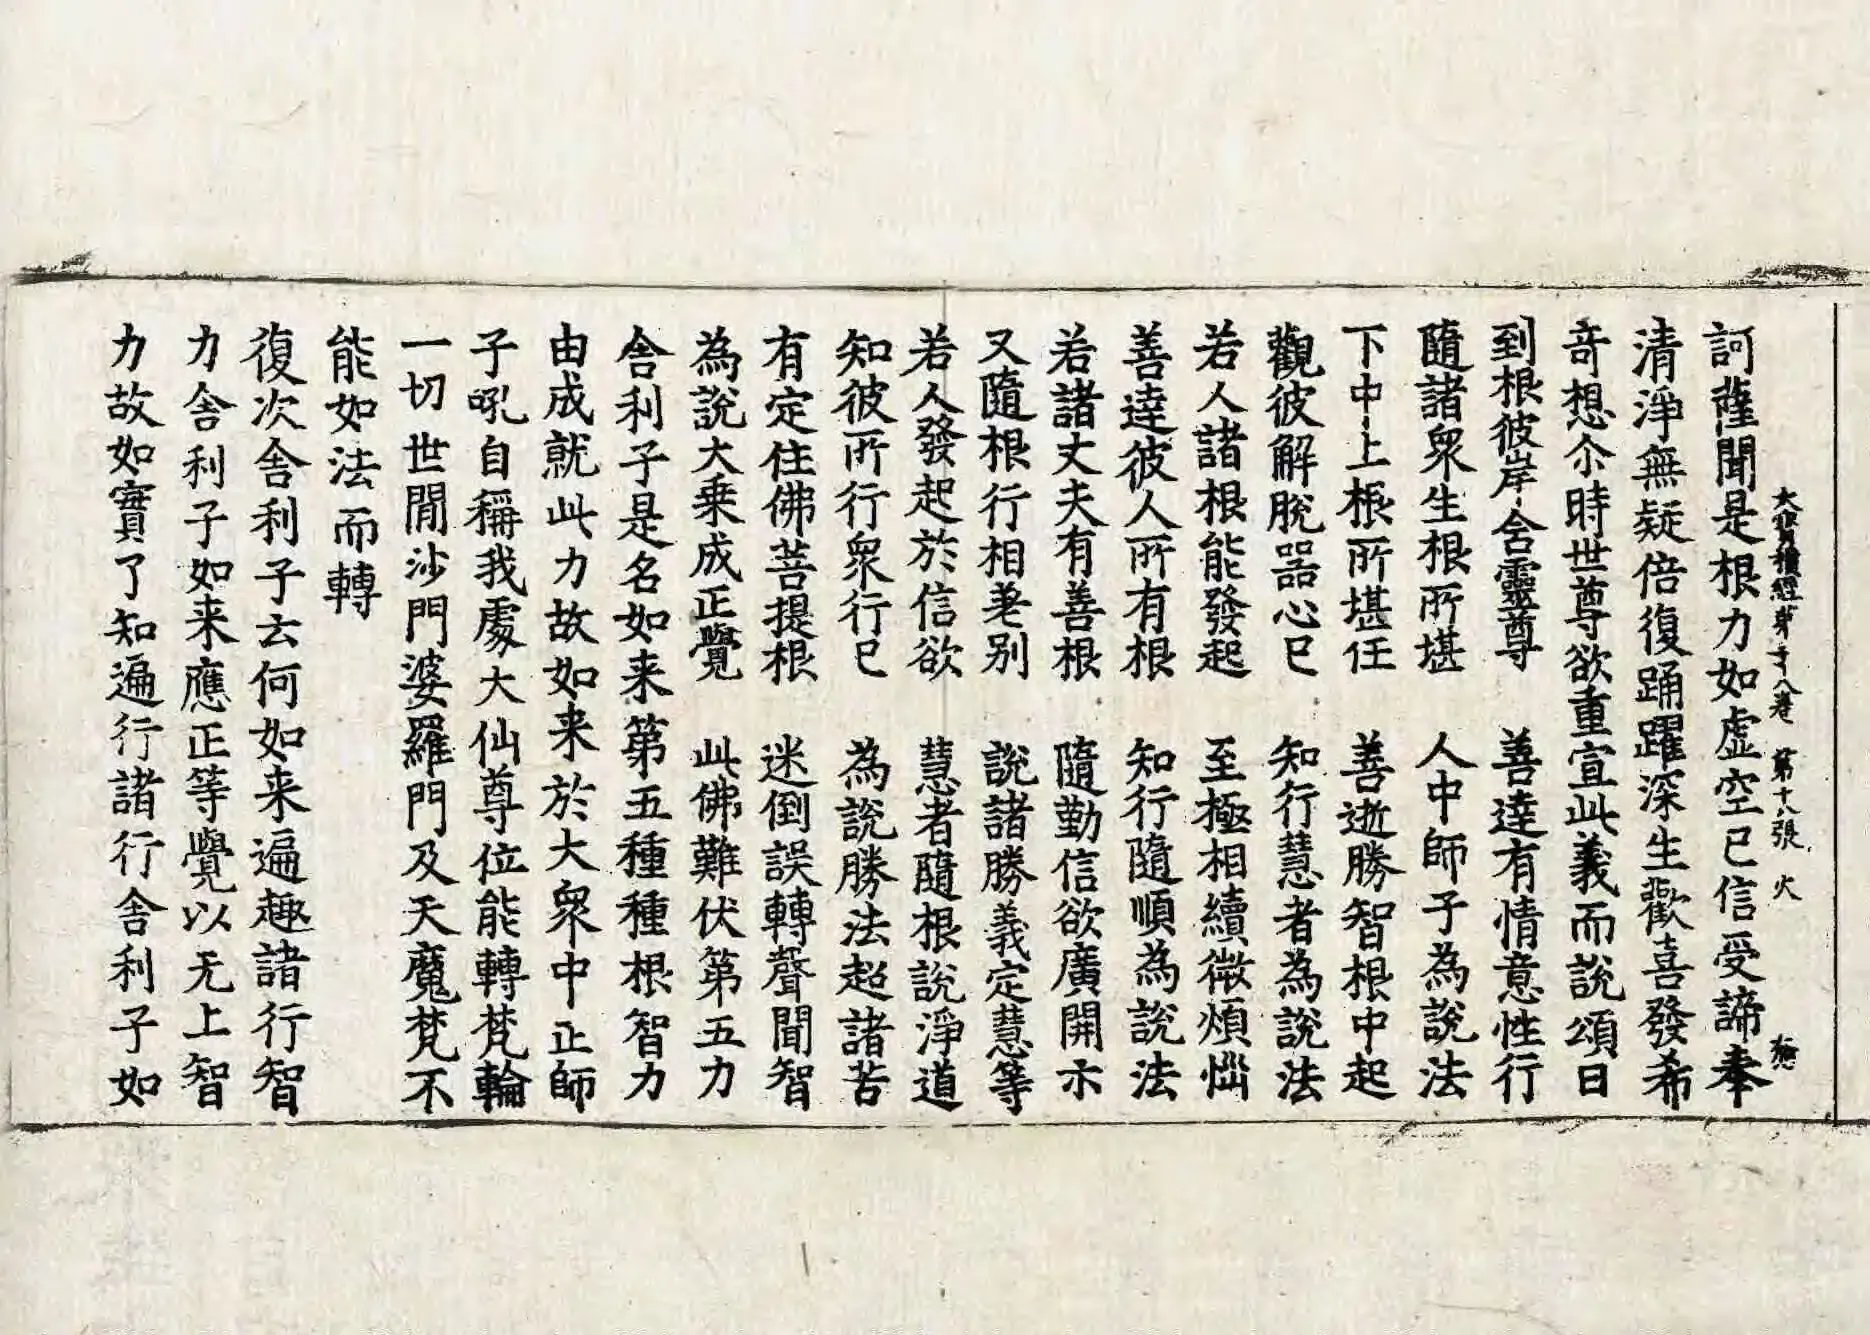 大寶積經第三十八卷 第十八張 火
訶薩聞是根力如虛空已信受諦奉
清淨無疑倍復踊躍深生歡喜發希
奇想尒時世尊欲重宣此義而說頌曰
到根彼岸舍靈尊 善達有情意性行
隨諸眾生根所堪 人中師子為說法
下中上根所堪任 善逝勝智根中起
觀彼解脫器心已 知行慧者為說法
若人諸根能發起 至極相續微煩惱
善達彼人所有根 知行隨順為說法
若諸丈夫有善根 隨勤信欲廣開示
又隨根行相差别 說諸勝義定慧等
若人發起於信欲 慧者隨根說淨道
知彼所行眾行已 為說勝法超諸苦
有定住佛菩提根 迷倒誤轉聲聞智
為說大乗成正覺 此佛難伏第五力
舍利子是名如来第五種種根智力
由成就此力故如来於大眾中正師
子吼自稱我處大仙尊位能轉梵輪
一切世間沙門婆羅門及天魔梵不
能如法而轉
復次舍利子云何如来遍趣諸行智
力舍利子如来應正等覺以无上智
力故如實了知遍行諸行舍利子如